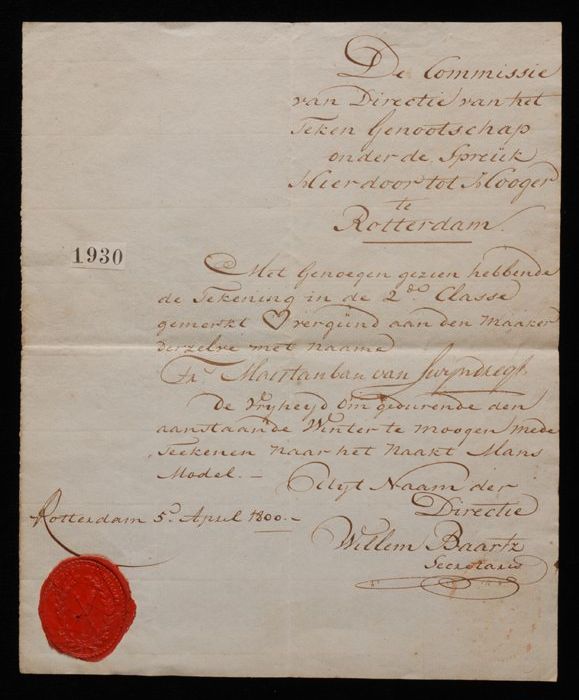 De Commissie
van Directie van het
Teken Genootschap
onder de Spreük
Hierdoor tot Hooger
te
Rotterdam.
1930
Met Genoegen gezien hebbende
de Tekening in de 2de Classe
gemerkt ♡ vergünd aan den Maaker
Derzelve met Naame
van Swyndregt
De Vryheyd Om gedurende den
aanstaande Winter te moogen mede
Teekenen Naar het Naakt Mans
Model. —
Uyt Naam der
Directie
Rotterdam 5n. April 1800. —
Willem Baartz
Secretaris